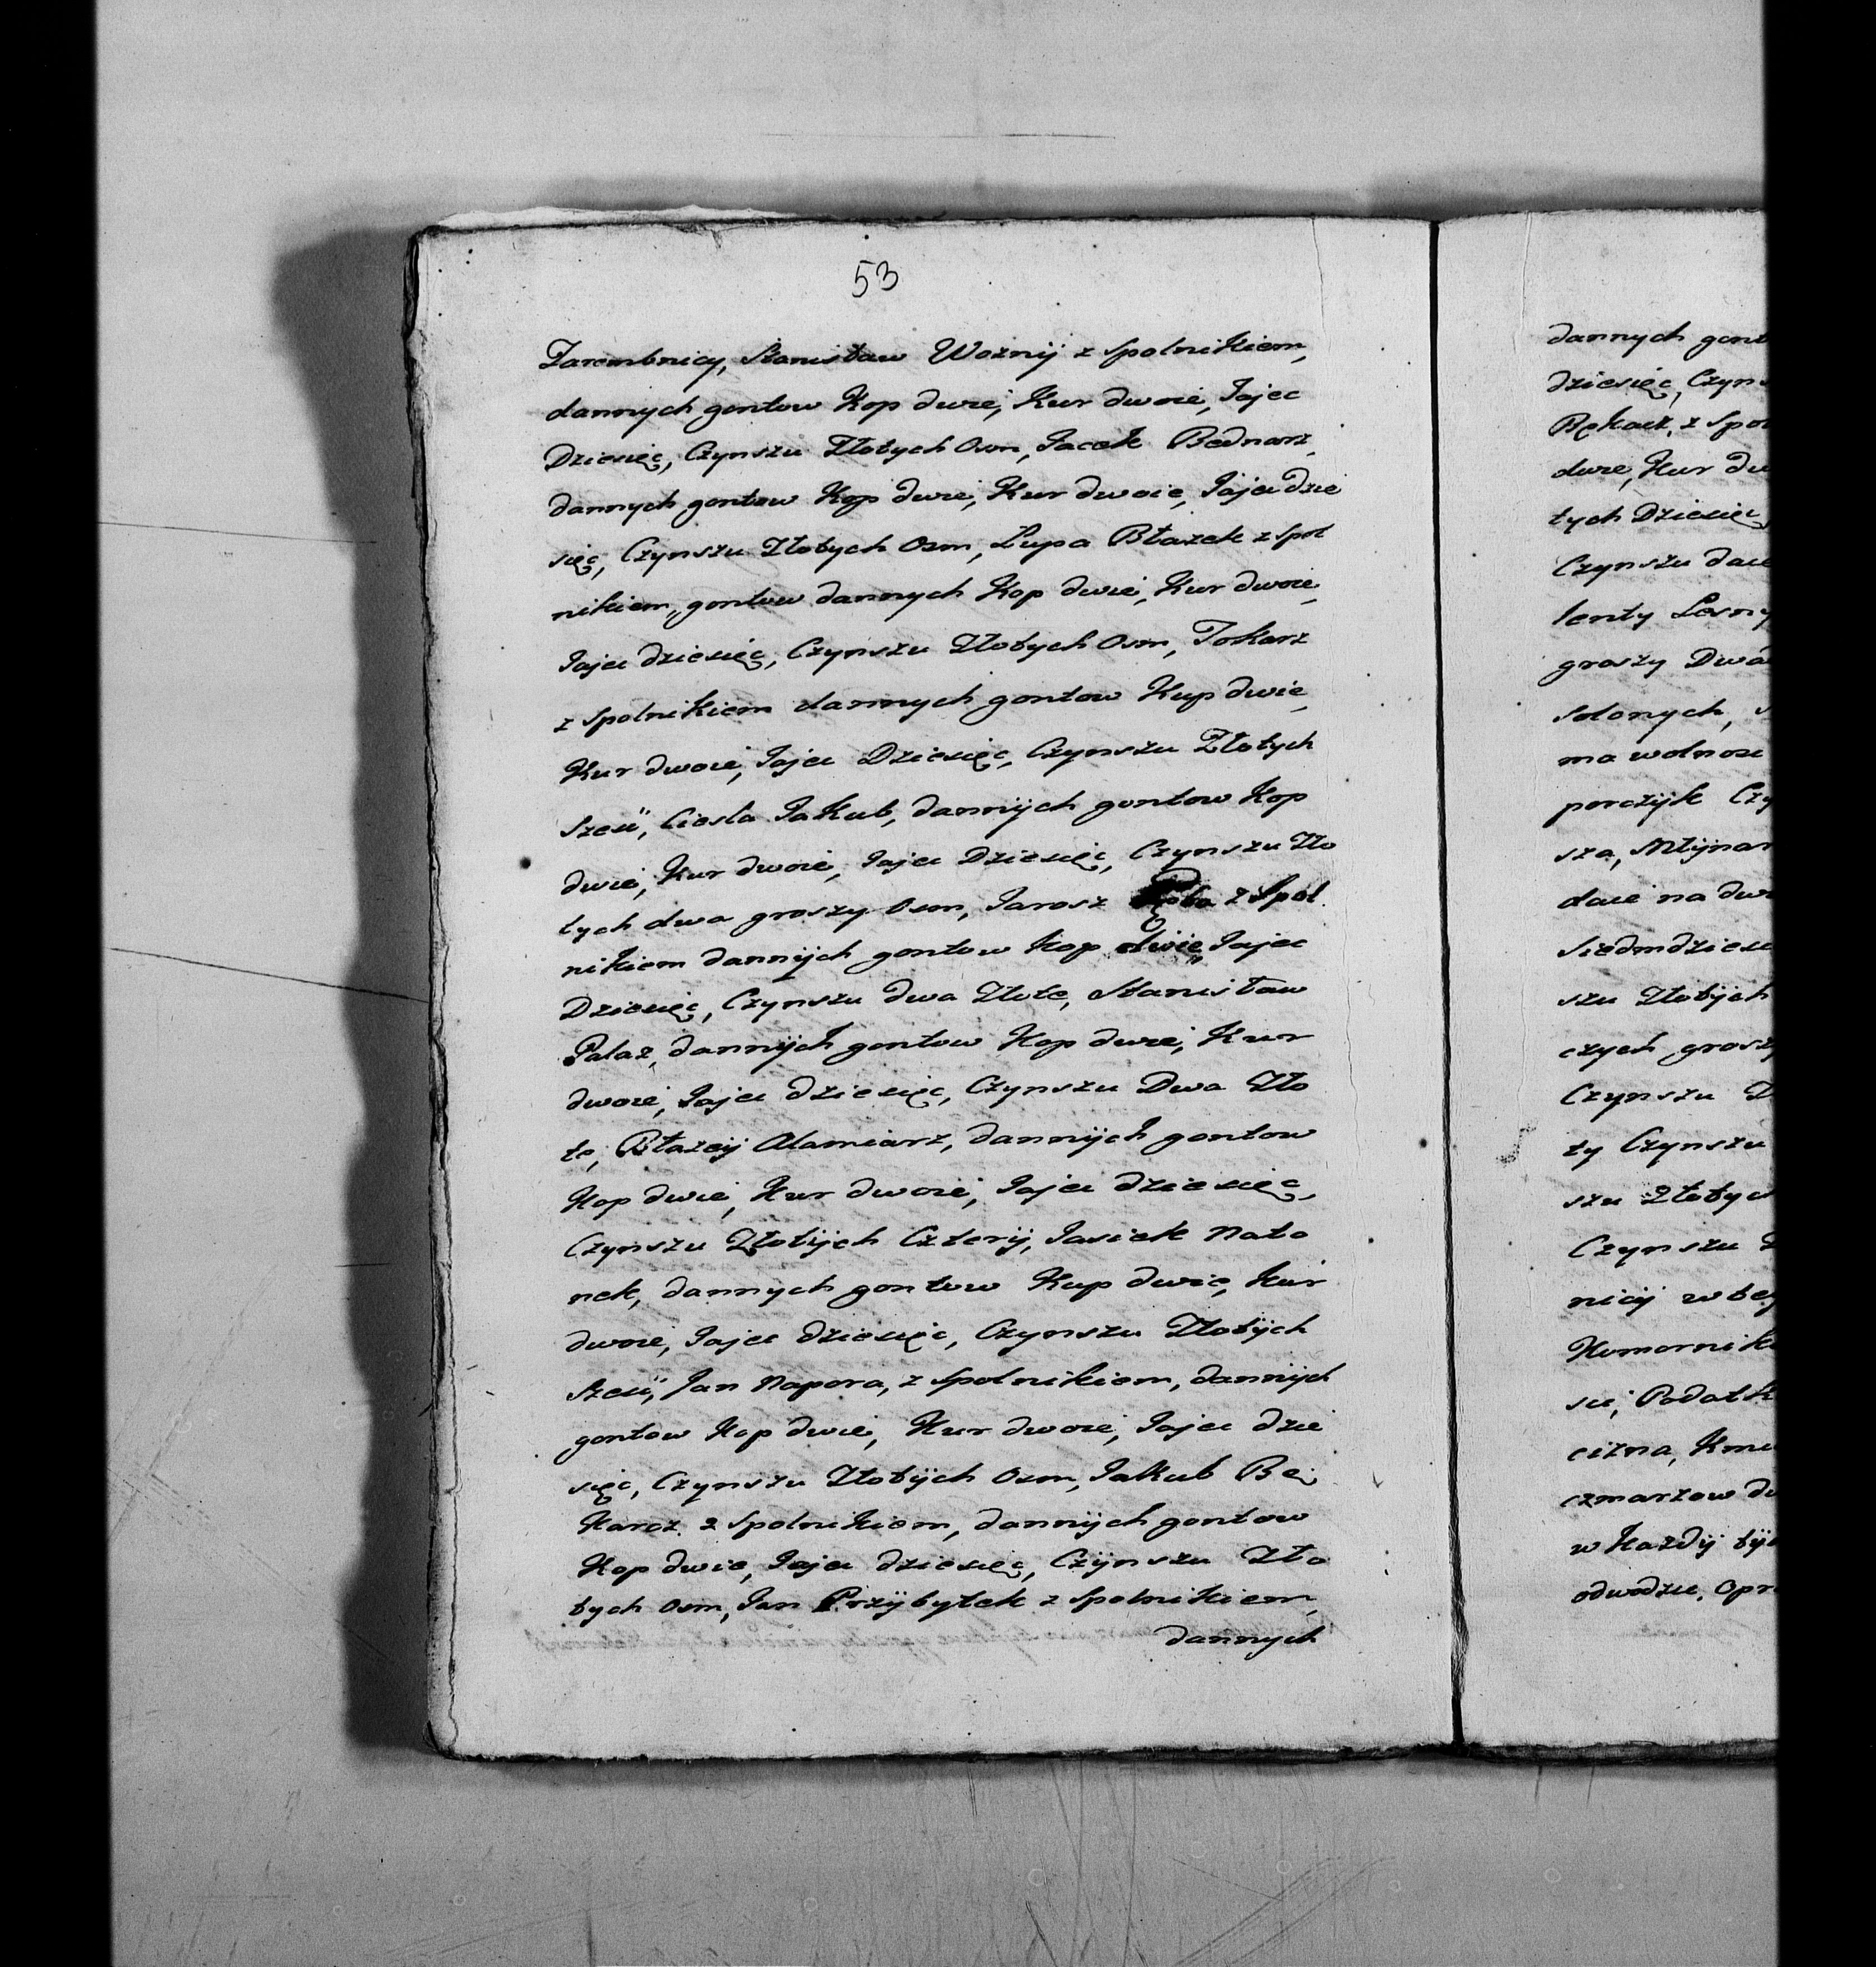 53
Zarembnicy, Stanisław Woznÿ z Spolnikiem,
dannych gontow Kop dwie, Kur dwoie, Jajec
Dziesięc, Czynszu Złotych Osm, Jacek Bednarz,
dannych gontow Kop dwie, Kur dwoie, Jajec dzie
sięc, Czynszu Złotych Osm, Łupa Błazek z Spol
nikiem, gontow dannych Kop dwie, Kur dwoie,
Jajec dziesięc, Czynszu Złotych Osm, Tokarz
z Spolnikiem dannych gontow Kop dwie,
Kur dwoie, Jajec Dziesięc, Czynszu Złotych
Szesc, Ciesla Jakub, dannÿch gontow Kop
dwie, Kur dwoie, Jajec Dziesięc, Czynszu Zło
tych dwa groszy Osm, Jarosz z Spol
nikiem dannÿch gontow Kop dwie, Jajec
Dziesięc, Czynszu dwa Złote, Stanisław
Palaz, dannÿch gontow Kop dwie, Kur
dwoie, Jajec dziesięc, Czynszu Dwa Zło
te, Błazeÿ dannÿch gontow
Kop dwie, Kur dwoie, Jajec dziesięc,
Czynszu Złotÿch Czterÿ, Jasiek Nato
nek, dannych gontow Kop dwie, Kur
dwoie, Jajec dziesięc, Czynszu Złotÿch
Szesc, Jan Napora, z Spolnikiem, dannÿch
gontow Kop dwie, Kur dwoie, Jajec dzie
sięc, Czynszu Złotÿch Osm, Jakub Bę
Karcz z Spolnikiem, dannÿch gontow
Kop dwie, Jajec dziesięc, Czÿnszu Zło
tych Osm, Jan Przÿbyłek z Spolnikiem,
dannych
dannych gont
dziesięc, Czyn
z Spol
dwie, Kur dw
tych Dziesięc,
Czynszu daie
lenty Lesny
groszy Dwa
solonych,
ma wolnosc
porczÿk Czy
sza, Młÿnar
daie na dwo
Siedmdziesi
szu Złotÿch
czych grosz
Czynszu
ty Czynszu
szu Złotych
Czynszu
niej w teÿ
Komornik
sie, Podatk
cizna, Kmie
czmarzow dw
w Kazdÿ tÿ
odwodzie, opr